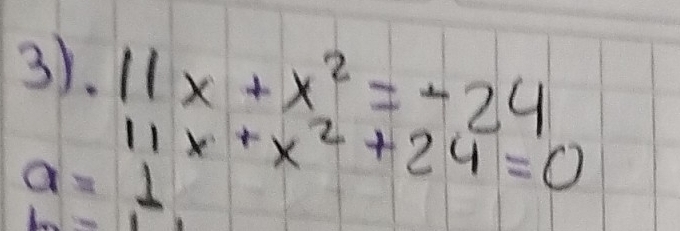 3). 11x + x² = -24
11x + x² + 24 = 0
a = 1